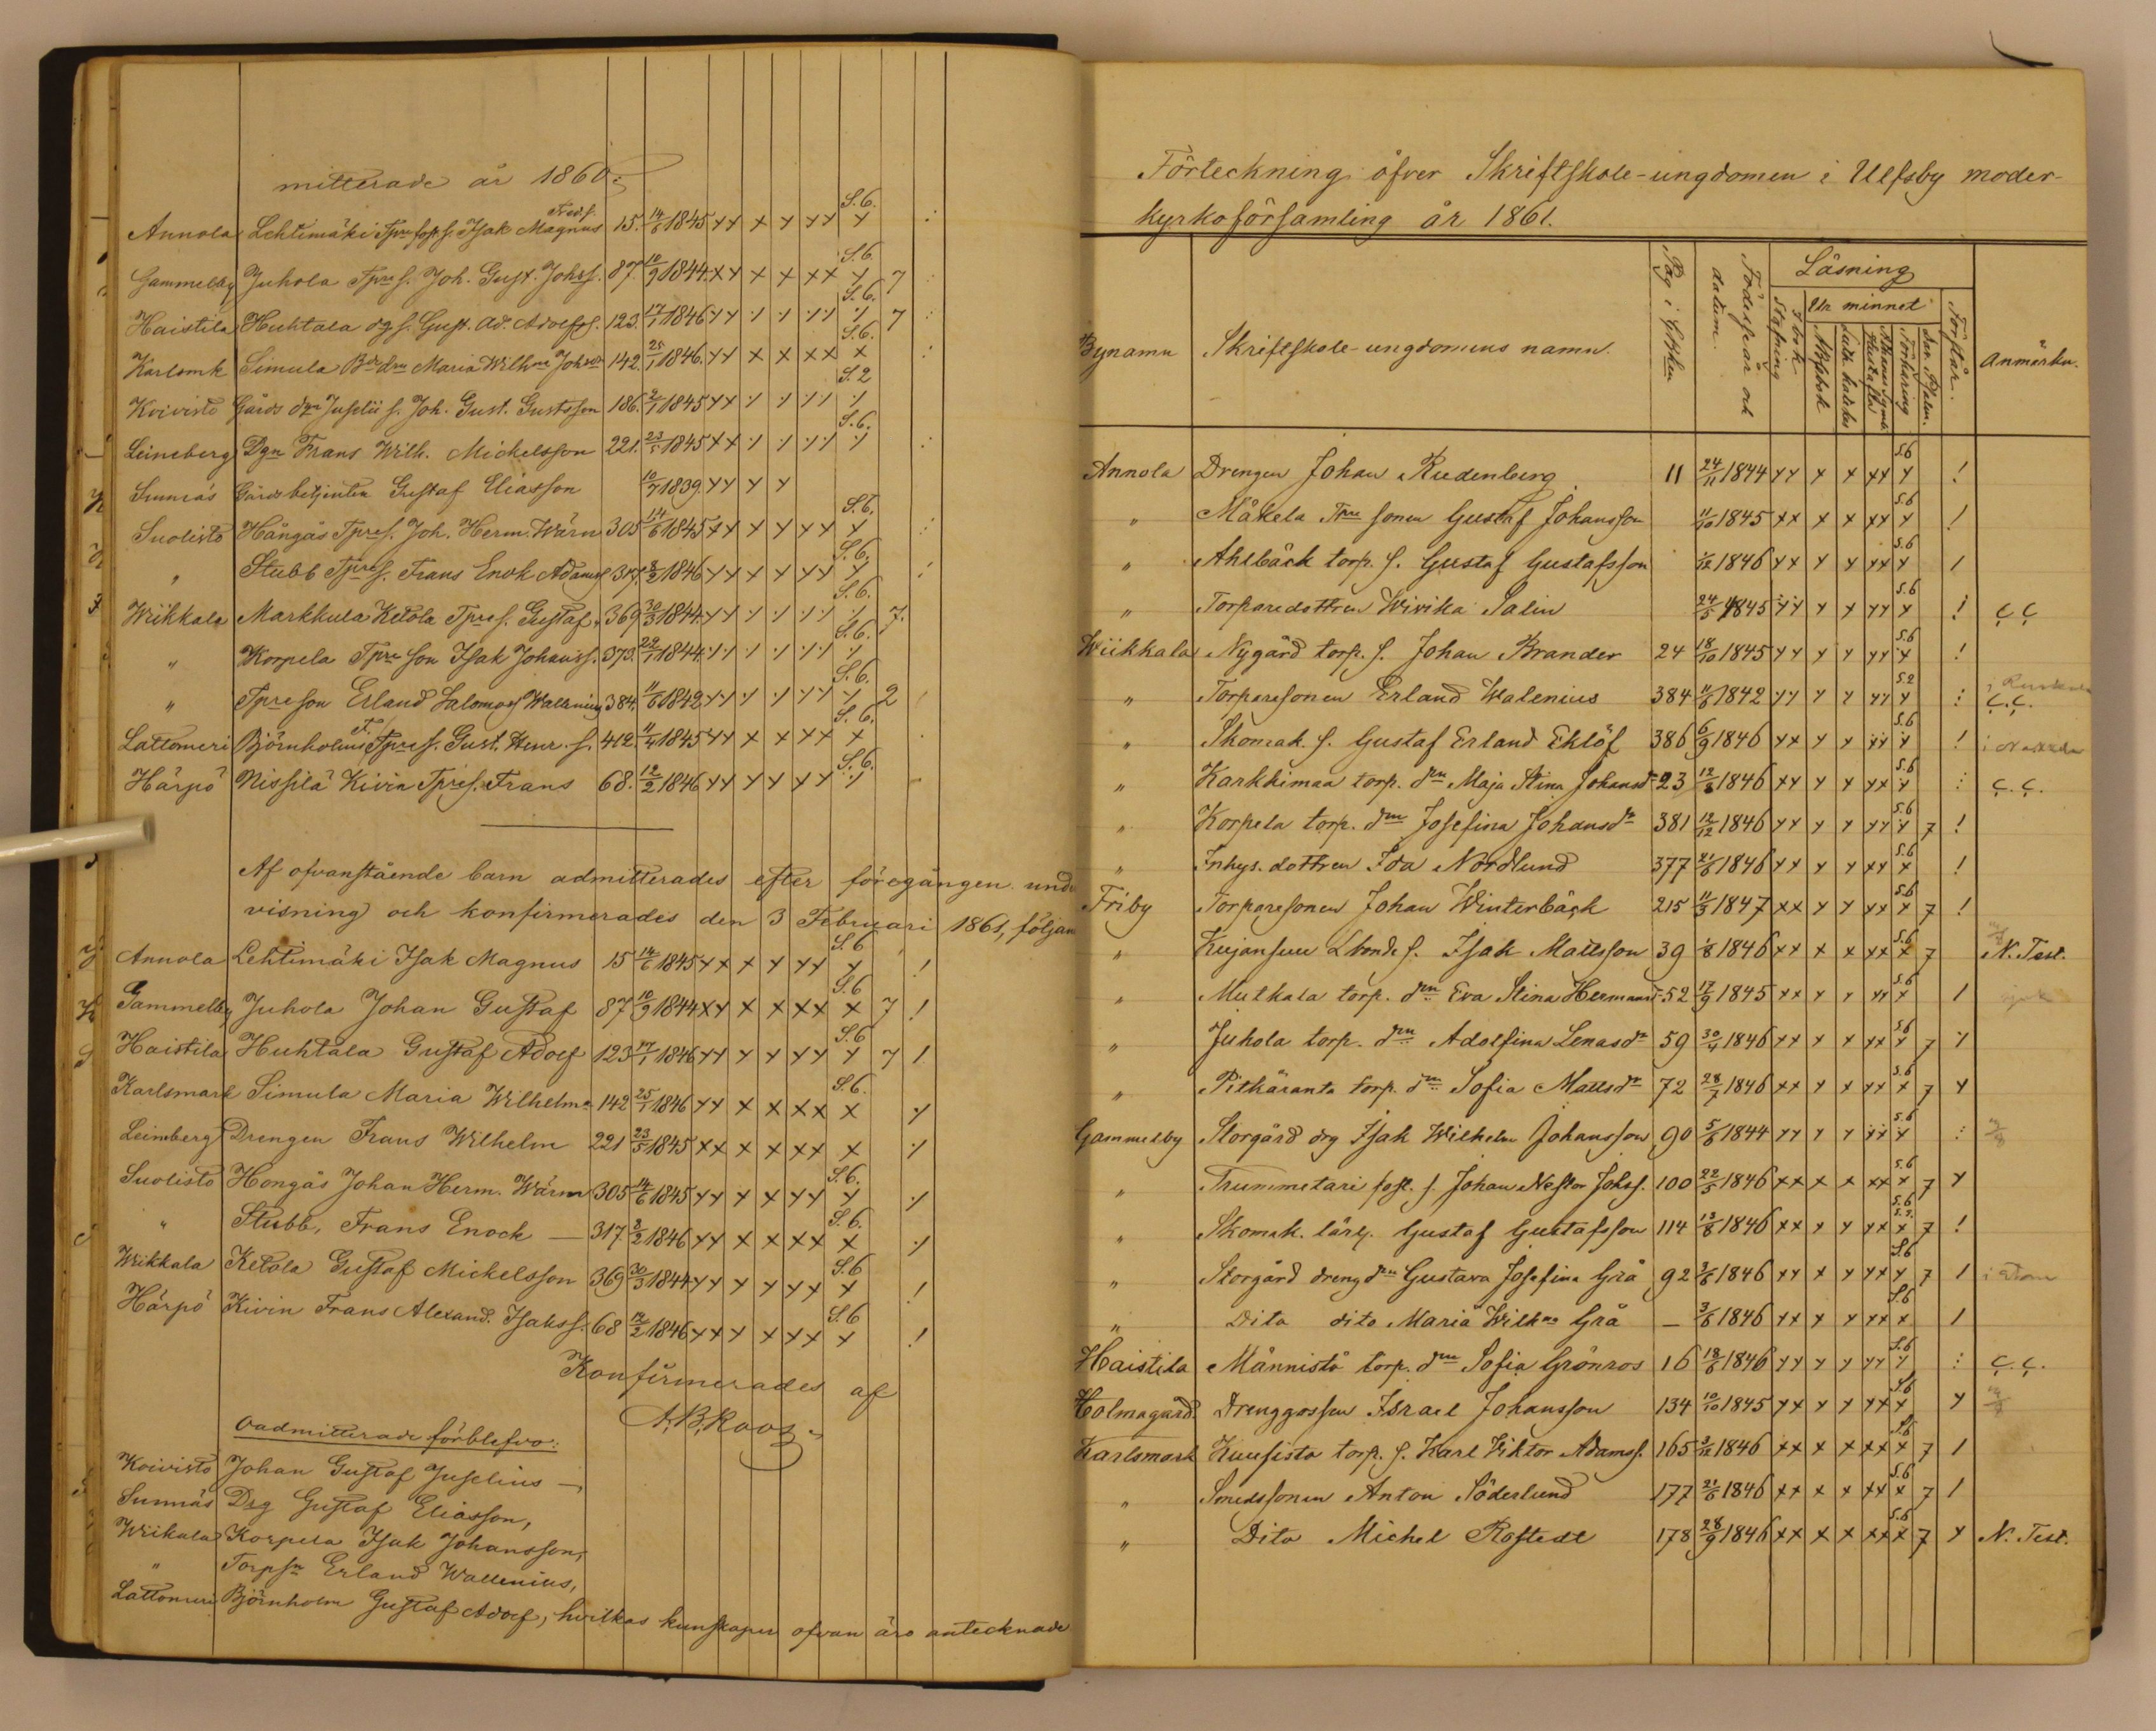 mitterade år 1860.
Fred. s.
Annola Lehtimäki Tpre fost. s. Isak Magnus 15. 14/6 1845 xx x x xx S.6. x
Gammelby Juhola Tpre s. Joh. Gust. Johss. 87. 10/9 1844. xx x x xx S.6. x 7
Haistila Huhtala dg s. Gust. Ad. Adolfss. 123. 17/1 1846 S.6. 7
Karlsmk Simula Maria Wilhna 142. 25/1 1846. xx x x xx S.6. x
Koivisto Gårds dgn Juselii s. Joh. Gust. Gustsson 186. 2/1 1845 S.2
Leineberg Dgn Frans Wilh. Mickelsson 221. 23/5 1845 S.6.
Sunnäs Gårds betjenten Gustaf Eliasson 10/7 1839. xx x x
Suolisto Hångäs Tpre s. Joh. Herm. Wärn 305 14/6 1845 xx x x xx S.6. x
„ Stubb Tpre s. Frans Enok Adamss 317. 8/2 1846 xx x x xx S.6. x
Wiikkala Markkula Ketola Tpre s. Gustaf 369 30/3 1844. S.6. 7.
„ Korpela Tpre son Isak Johanss. 373. 29/1 1844. S.6.
„ Tpre son Erland Salomoss Wallenius 384. 11/6 1842 S.6. 2
Lattomeri Björnholms Tpre s. Gust. Henr. s. 412. 11/4 1845 xx x x xx S.6. x
Härpö Nissilä Kivin Tpre s. Frans 68. 12/2 1846 xx x x xx S.6.
Af ofvanstående barn admitterades efter föregången unde
visning och konfirmerades den 3 Februari 1861, följan
Annola Lehtimäki Isak Magnus 15 14/6 1845 xx x x xx S.6 x !
Gammelby Juhola Johan Gustaf 87 10/9 1844 xx x x xx S.6 x 7 !
Haistila Huhtala Gustaf Adolf 123 17/1 1846 xx x x xx S.6 x 7 !
Karlsmark Simula Maria Wilhelma 142 25/1 1846 xx x x xx S.6. x
Leineberg Drengen Frans Wilhelm 221 23/5 1845 xx x x xx x
Suolisto Hongäs Johan Herm. Wärn 305 14/6 1845 xx x x xx S.6. x
„ Stubb, Frans Enock — 317. 8/2 1846 xx x x xx S.6. x
Wiikkala Ketola Gustaf Mickelsson 369 30/3 1844 xx x x xx S.6 x !
Härpö Kivin Frans Alexand. Isakss. 68 12/2 1846 xx x x xx S.6 x !
Konfirmerades af
A. B. Roos.
Oadmitterade förblefvo:
Koivisto Johan Gustaf Juselius —
Sunnäs Drg Gustaf Eliasson,
Wiikala Korpela Isak Johansson,
„ Torpsn Erland Wallenius,
Lattomeri Björnholm Gustaf Adolf, hvilkas kunskaper ofvan äro antecknade
Förteckning öfver Skriftskole-ungdomen i Ulfsby moder-
kyrkoförsamling år 1861.
Bynamn Skriftskole-ungdomens namn. Pag i Födelseår och datum. Läsning Förstår. Anmärkn.
Stafning I bok Ur minnet ABCbok Luth. katekes Hustafla Förklaring Dav. Psalm.
Annola Drengen Johan Rudenberg 11 24/11 1844 xx x x xx S.6 x !
„ Mäkela Tpre sonen Gustaf Johansson 11/10 1845 xx x x xx S.6 x !
„ Ahlbäck torp. s. Gustaf Gustafsson 1/12 1846 xx x x xx S.6 x !
„ Torparedottren Wivika Salin 24/5 1845 xx x x xx S.6 x ! ç ç
Wiikkala Nygård torp. s. Johan Brander 24 18/10 1845 xx x x xx S.6 x !
„ Torparesonen Erland Walenius 384 11/6 1842 xx x x xx S.2 x : ç.ç.
„ Skomak. s. Gustaf Erland Eklöf 386 6/9 1846 xx x x xx S.6 x !
„ Karhkimaa torp. dtn Maja Stina Johansd. 23 12/3 1846 xx x x xx S.6 x : ç.ç.
„ Korpela torp. dtn Josefina Johansdr 381 12/12 1846 xx x x xx S.6 x 7 !
„ Inhys. dottren Ida Nordlund 377 21/6 1846 xx x x xx S.6 x !
Friby Torparesonen Johan Winterbäck 215 11/3 1847 xx x x xx S.6 x 7 !
„ Kujansuu Lbonde s. Isak Mattsson 39 1/8 1846 xx x x xx S.6 x 7 N. Test.
„ Mutkala torp. dtn Eva Stina Hermansd. 52 17/9 1845 xx x x xx S.6 x !
„ Juhola torp. dtn Adolfina Lenasdr 59 30/4 1846 xx x x xx S.6 x 7
„ Pitkäranta torp. dtn Sofia Mattsdr 72 28/7 1846 xx x x xx S.6 x 7 x
Gammelby Storgård drg Isak Wilhelm Johansson 90 5/6 1844 xx x x xx S.6 x :
„ Trummetari fost. s. Johan Nestor Johss. 100 22/5 1846 xx x x xx S.6 x 7 x
„ Skomak. lärl. Gustaf Gustafsson 114 13/8 1846 xx x x xx S.6 x 7 !
„ Storgård dreng dtn Gustava Josefina Grå 92 3/6 1846 xx x x xx S.6 x 7 !
„ Dito dito Maria Wilhna Grå — 3/6 1846 xx x x xx S.6 x !
Haistila Männistö torp. dtn Sofia Grönros 16 18/6 1846 xx x x xx S.6 x : ç.ç.
Holmagård Drenggossen Israel Johansson 134 10/10 1845 xx x x xx S.6 x x
Karlsmark Kuusisto torp. s. Karl Viktor Adamss. 165 3/12 1846 xx x x xx S.6 x 7 !
„ Smedssonen Anton Söderlund 177 21/6 1846 xx x x xx S.6 x 7 !
„ Dito Michel Rostedt 178 28/9 1846 xx x x xx S.6 x 7 x N. Test.